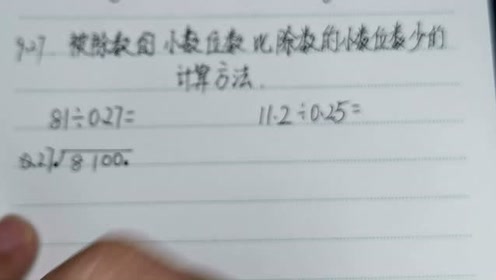 9.27. 被除数的小数位数比除数的小数位数少的
计算方法.
81÷0.27= 11.2÷0.25=
0.27√8100.